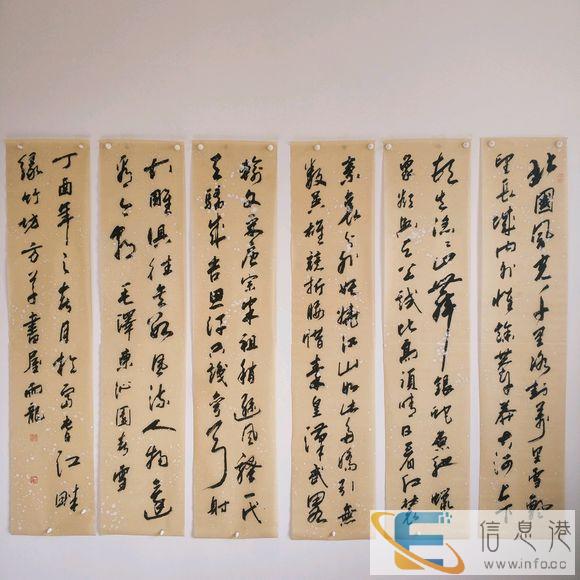 北國風光千里冰封萬里雪飄
望長城內外惟餘莽莽大河上下
頓失滔滔山舞銀蛇原馳蠟
象欲與天公試比高須晴日看紅裝
素裹分外妖嬈江山如此多嬌引無
數英雄競折腰惜秦皇漢武略
輸文采唐宗宋祖稍遜風騷一代
天驕成吉思汗只識彎弓射
大雕俱往矣數風流人物還
看今朝 毛澤東沁園春雪
丁酉年之春月於富春江畔
竹坊方草書屋雨龍
信息港
www.infocc.cc